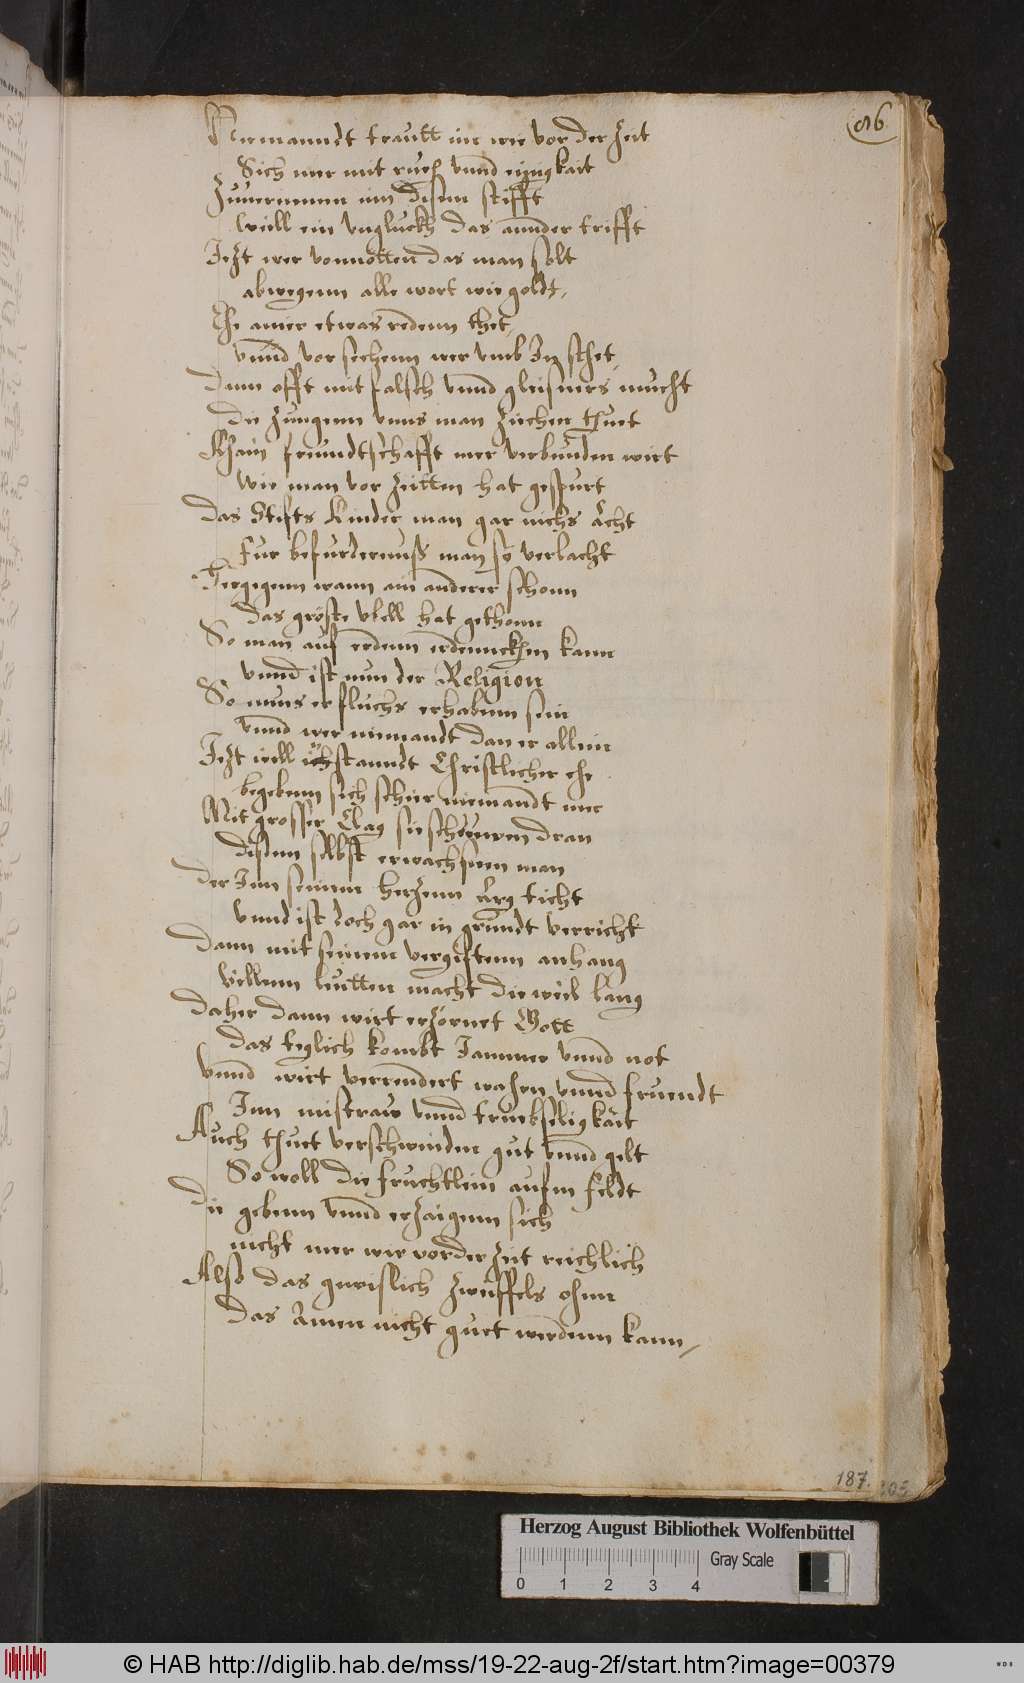 86
Niemanndt trautt im wie vor der Zeit
Sich mer mit rueh vnnd einigkait
Zuuernemen inn disem stifft
Weill ein vngluckh das annder trifft
Jezt wer vonnötten das man solt
abwegenn alle wort wie goldt,
Ehe ainer etwas redenn thet
vnnd vor sechenn wer vmb In sthet
Dann offt mit falsch vnnd gleisners
die Zungenn vnns man Ziehen thuet
Khain freundtschafft mer verbunden wirt
Wie man vor Zeitten hat gespurt
Das Stiffts Kinder man gar nichs acht
fur befurdernuß man sy verlacht
Hergegenn wann ain anderer schonn
Das gröste vbell hat gethonn
So man auf erdenn erdennckhen kann
vnnd ist nun der Religion
So muns er fluchs erhabenn sein
vnnd wer niemandt dan er allein
Jezt will standt Christlicher ehe
begebenn sich schier niemandt mer
Mit grosser Clag sie dran
disenn selbst erwachsnen man
der Inn seinem herzenn arg ticht
vnnd ist doch gar in grundt verricht
Dann mit seinem vergiftenn anhang
Villenn leutten macht die weil lang
daher dann wirt erzörnet Gott
das teglich kombt Jammer vnnd not
vnnd wirt verenndert vnnd freundt
Inn mistraw vnnd truebseligkait
Auch thuet verschwinden gut vnnd gelt
So woll die fruchtlein aufm feldt
Die gebenn vnnd erzaigenn sich
nicht mer wie vor der Zeit reichlich
Also das gewislich Zweiffels ohne
das Amen nicht guet werdenn kann,
187.
205
Herzog August Bibliothek Wolfenbüttel
Gray Scale
0 1 2 3 4
© HAB http://diglib.hab.de/mss/19-22-aug-2f/start.htm?image=00379